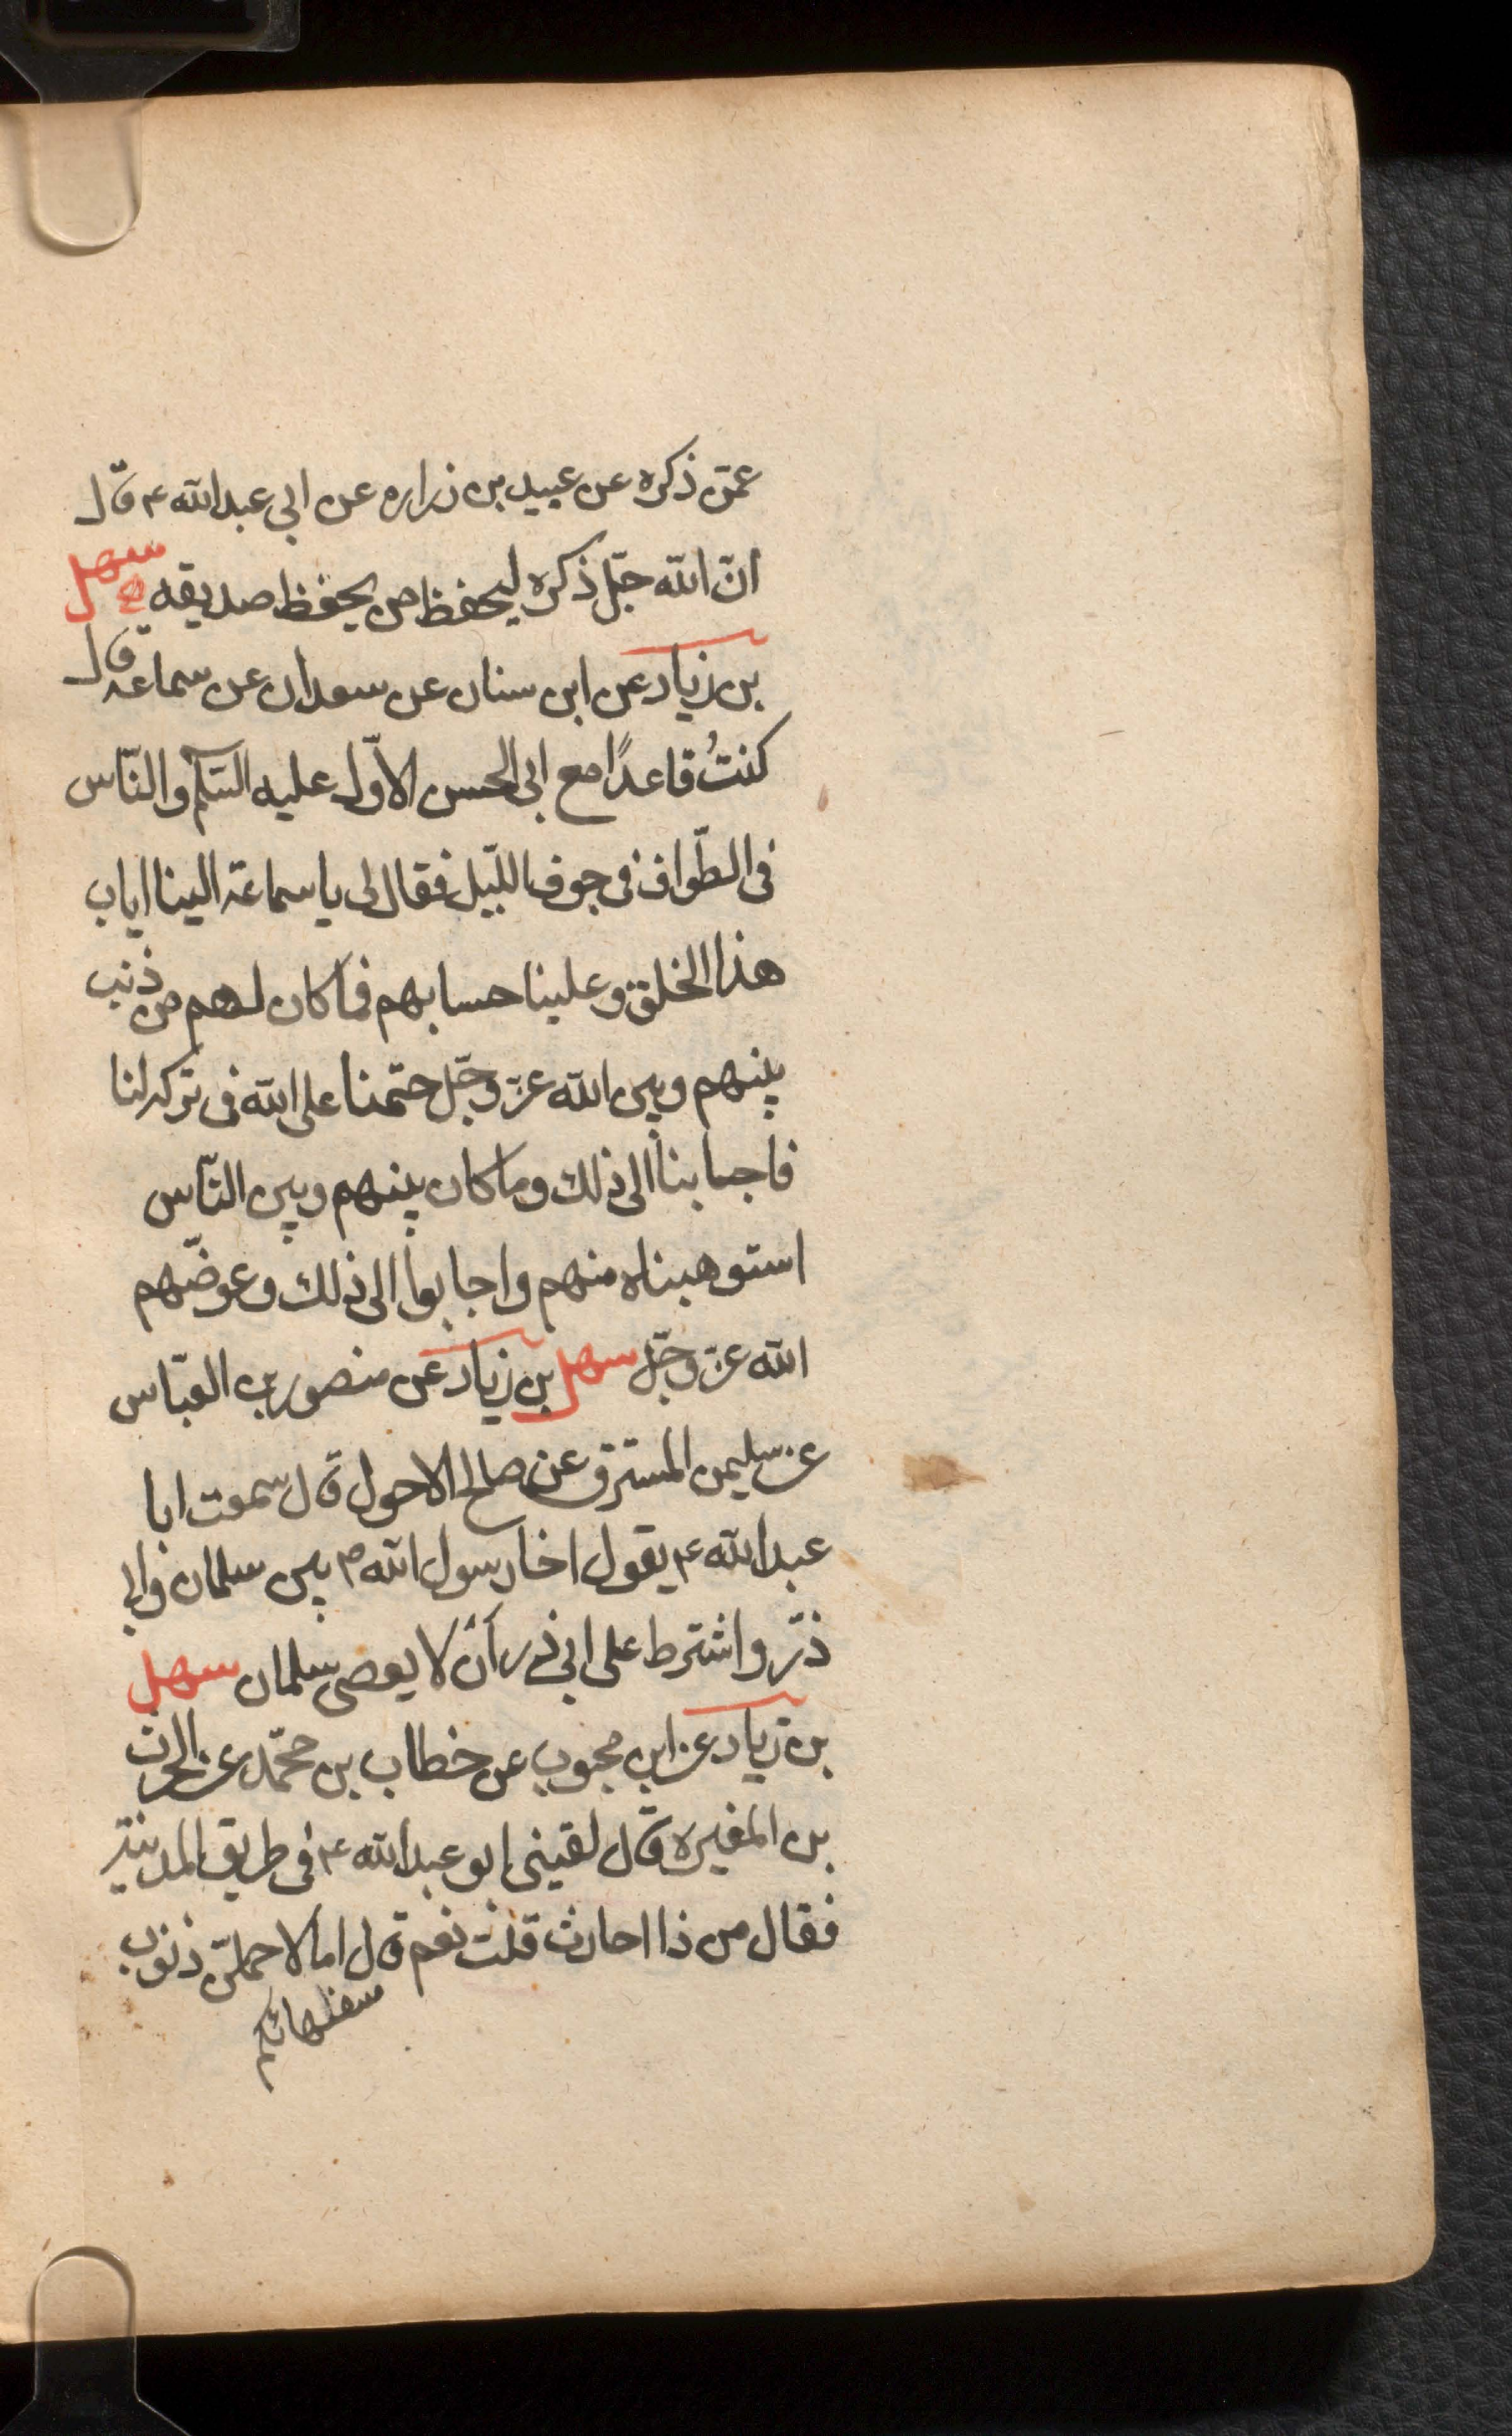 عمّن ذكره عن عبيد بن زراره عن ابي عبدالله ع قال
انّ الله جلّ ذكره ليحفظ من يحفظ صديقه سهل
بن زياد عن ابن سنان عن سعدان عن سماعة قال
كنتُ قاعدًا مع ابى الحسن الاوّل عليه السّلم والنّاس
فى الطّواف فى جوف اللّيل فقال لى يا سماعة الينا اياب
هذا الخلق وعلينا حسابهم فما كان لهم من ذنب
بينهم وبين الله عزّ وجلّ حتّمنا على الله فى تركه لنا
فاجابنا الى ذلك وما كان بينهم وبين النّاس
استوهبناه منهم واجابوا الى ذلك وعوضّهم
الله عزّ وجلّ سهل بن زياد عن منصور بن العبّاس
عن سليمن المسترق عن صالح الاحول قال سمعت ابا
عبدالله ع يقول اخا رسول الله ص بين سلمان وابى
ذرّ واشترط على ابى ذر أن لا يعصى سلمان سهل
بن زياد عن ابن محبوب عن خطاب بن محمّد عن الحرث
بن المغيرة قال لقينى ابو عبدالله ع فى طريق المدينة
فقال من ذا احارث قلت نعم قال اما لاحملنّ ذنوب
سفهائكم